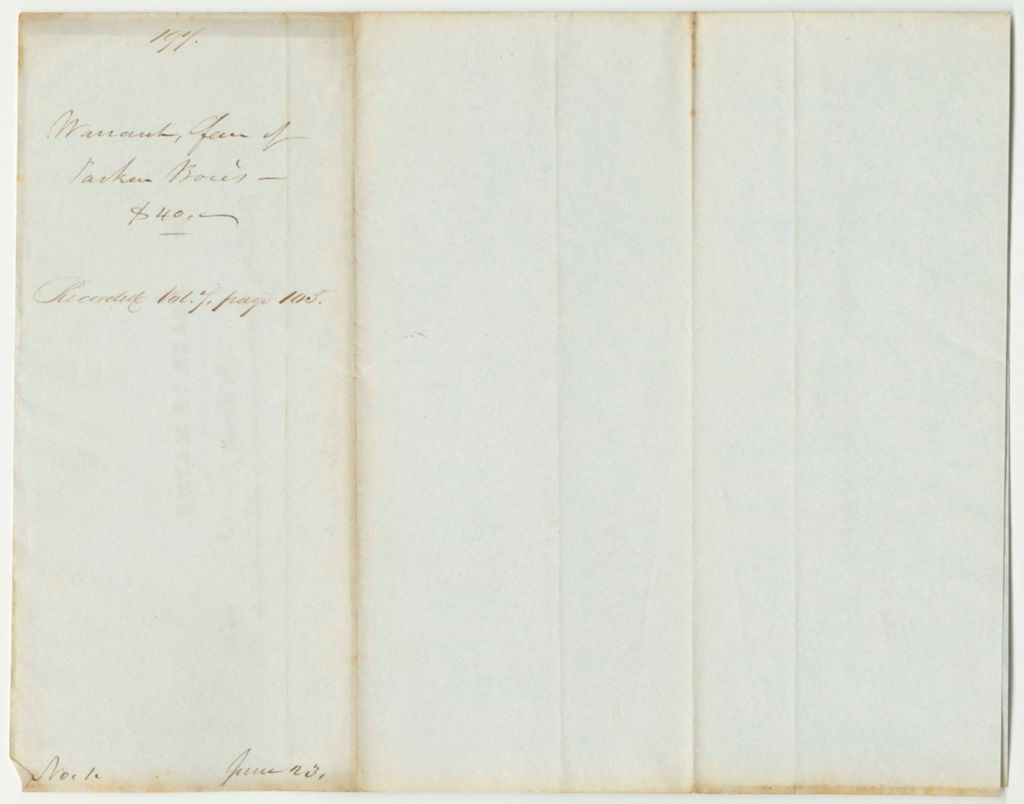 197.
Warrant, favr of
Parker Boies —
$40.—
Recorded Vol. 7. page 105.
No. 1. June 23.